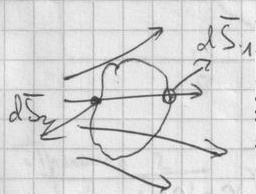 dS̄₁
dS̄₂